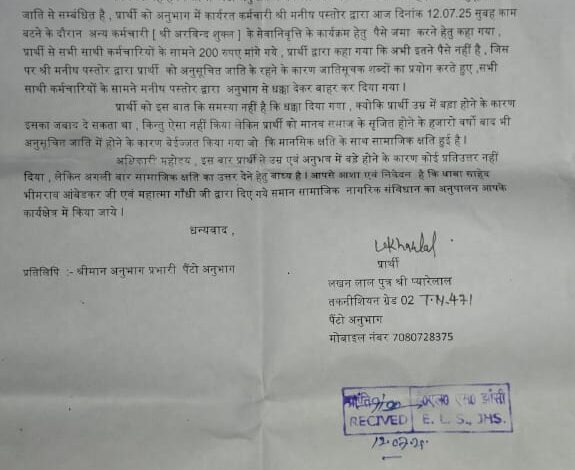 जाति से सम्बंधित है , प्रार्थी को अनुभाग में कार्यरत कर्मचारी श्री मनीष पस्तोर द्वारा आज दिनांक 12.07.25 सुबह काम
बटने के दौरान अन्य कर्मचारी [ श्री अरविन्द शुक्ल ] के सेवानिवृत्ति के कार्यक्रम हेतु पैसे जमा करने हेतु कहा गया ,
प्रार्थी से सभी साथी कर्मचारियों के सामने 200 रुपए मांगे गये , प्रार्थी द्वारा कहा गया कि अभी इतने पैसे नहीं है , जिस
पर श्री मनीष पस्तोर द्वारा प्रार्थी को अनुसूचित जाति के रहने के कारण जातिसूचक शब्दों का प्रयोग करते हुए ,सभी
साथी कर्मचारियों के सामने मनीष पस्तोर द्वारा अनुभाग से धक्का देकर बाहर कर दिया गया।
प्रार्थी को इस बात कि समस्या नहीं है कि धक्का दिया गया , क्योकि प्रार्थी उम्र में बड़ा होने के कारण
इसका जवाद दे सकता था , किन्तु ऐसा नहीं किया लेकिन प्रार्थी को मानव समाज के सृजित होने के हजारो वर्षो बाद भी
अनुसूचित जाति में होने के कारण बेईज्जत किया गया जो कि मानसिक क्षति के साथ सामाजिक क्षति हुई है।
अधिकारी महोदय , इस बार प्रार्थी ने उम्र एवं अनुभव में बड़े होने के कारण कोई प्रतिउत्तर नहीं
दिया , लेकिन अगली बार सामाजिक क्षति का उत्तर देने हेतु वाध्य है। आपसे आशा एवं निवेदन है कि बाबा साहेब
भीमराव आंबेडकर जी एवं महात्मा गाँधी जी द्वारा दिए गये समान सामाजिक नागरिक संविधान का अनुपालन आपके
कार्यक्षेत्र में किया जाये।
धन्यवाद ,
प्रार्थी
प्रतिलिपि :- श्रीमान अनुभाग प्रभारी पैंटो अनुभाग
लखन लाल पुत्र श्री प्यारेलाल
तकनीशियन ग्रेड 02 T.N.471
पैंटो अनुभाग
मोबाइल नंबर 7080728375
झाँसी
RECIVED E. L. S., JHS.
12.07.25